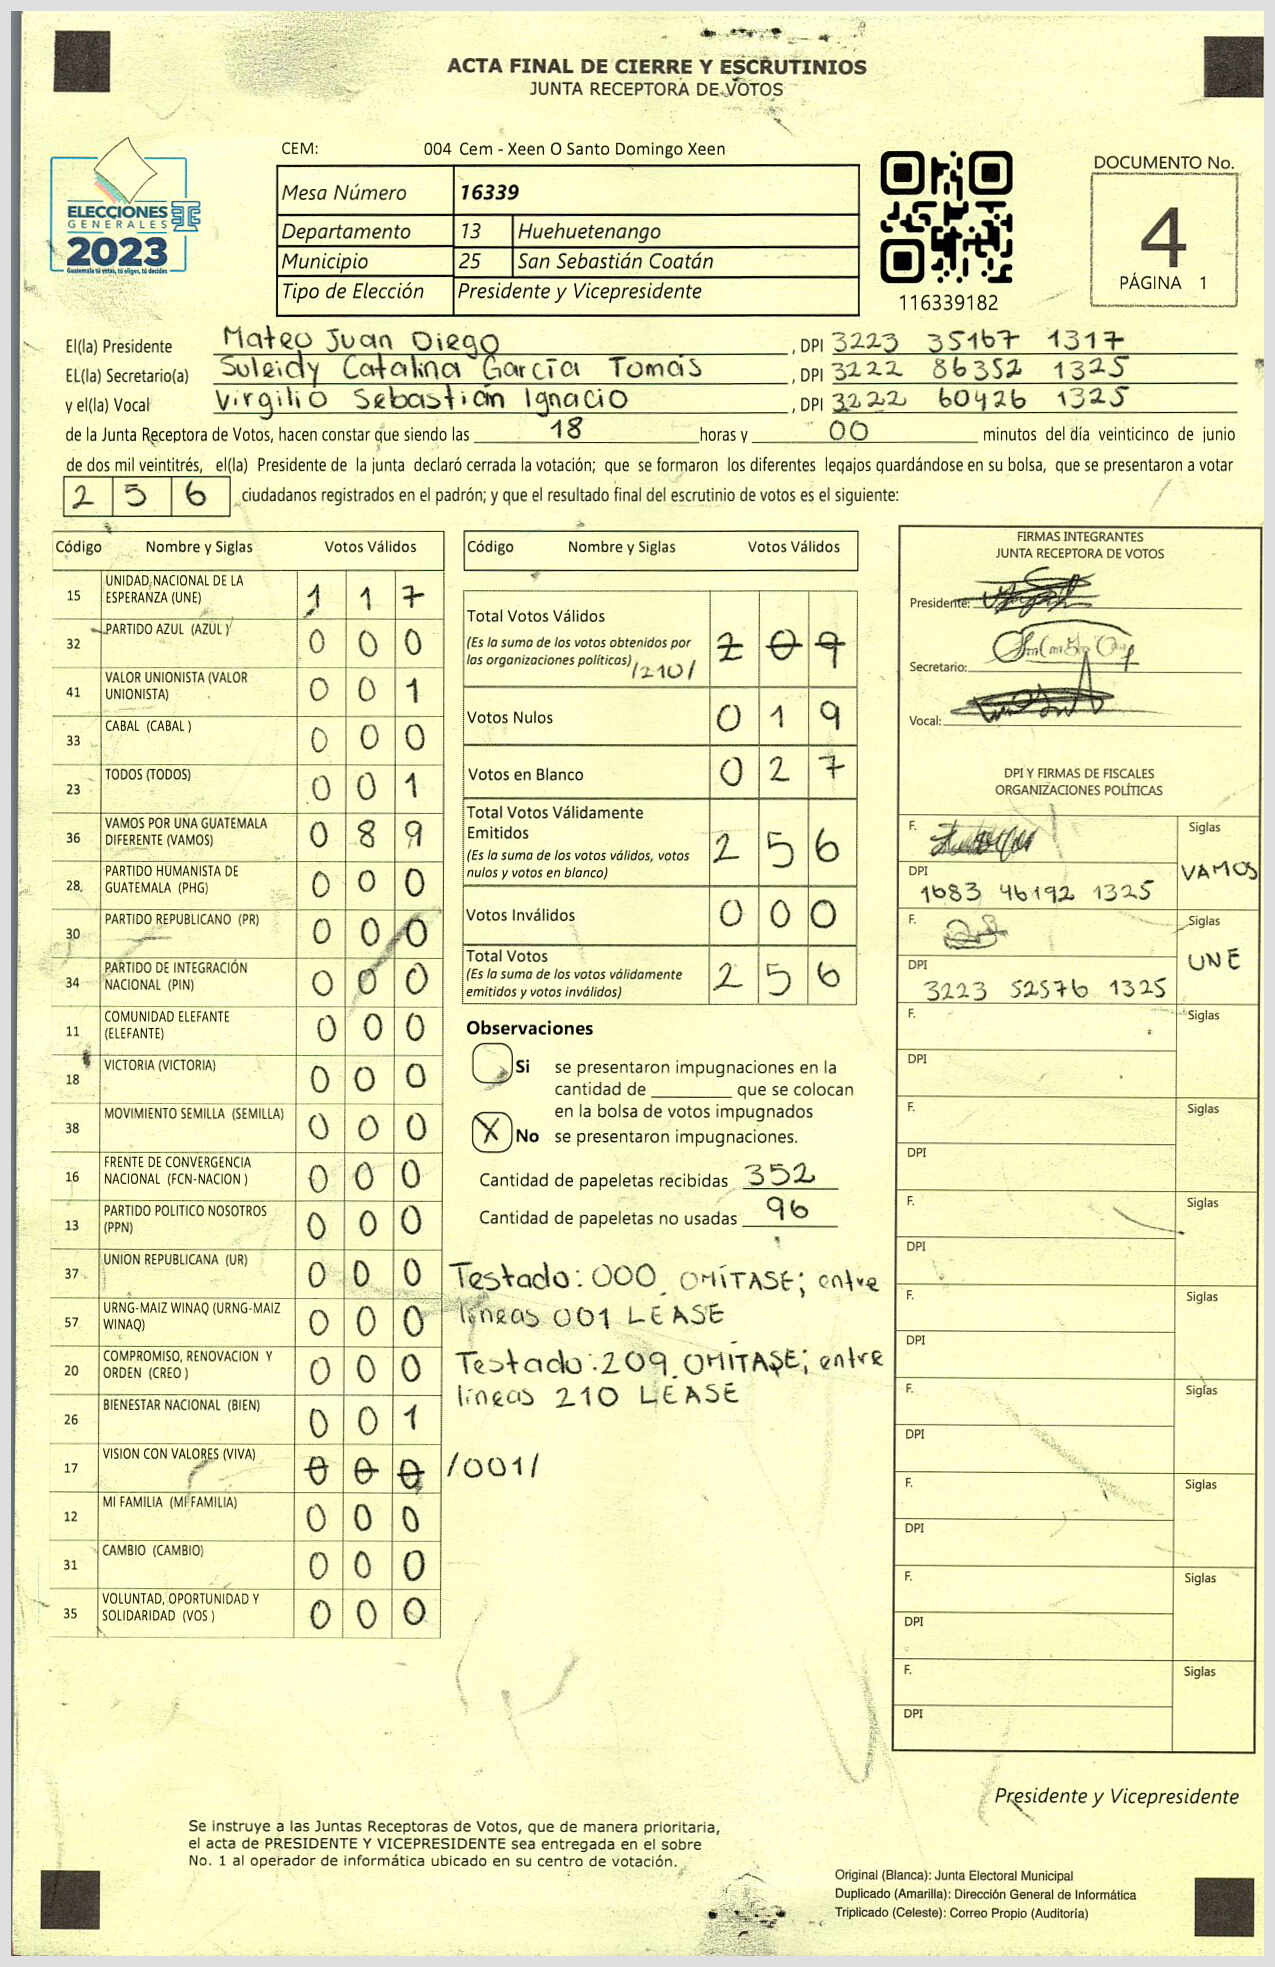 ACTA FINAL DE CIERRE Y ESCRUTINIOS
JUNTA RECEPTORA DE VOTOS
CEM: 004 Cem - Xeen O Santo Domingo Xeen
ELECCIONES
GENERALES
2023
Guatemala tú votas, tú eliges, tú decides
Mesa Número 16339
Departamento 13 Huehuetenango
Municipio 25 San Sebastián Coatán
Tipo de Elección Presidente y Vicepresidente
116339182
DOCUMENTO No.
4
PÁGINA 1
El(la) Presidente Mateo Juan Diego, DPI 3223 35167 1317
EL(la) Secretario(a) Suleidy Catalina García Tomás, DPI 3222 86352 1325
y el(la) Vocal Virgilio Sebastián Ignacio, DPI 3222 60426 1325
de la Junta Receptora de Votos, hacen constar que siendo las 18 horas y 00 minutos del día veinticinco de junio
de dos mil veintitrés, el(la) Presidente de la junta declaró cerrada la votación; que se formaron los diferentes legajos guardándose en su bolsa, que se presentaron a votar
2 5 6 ciudadanos registrados en el padrón; y que el resultado final del escrutinio de votos es el siguiente:
Código Nombre y Siglas Votos Válidos
15 UNIDAD NACIONAL DE LA
ESPERANZA (UNE) 1 1 7
32 PARTIDO AZUL (AZUL ) 0 0 0
41 VALOR UNIONISTA (VALOR
UNIONISTA) 0 0 1
33 CABAL (CABAL ) 0 0 0
23 TODOS (TODOS) 0 0 1
36 VAMOS POR UNA GUATEMALA
DIFERENTE (VAMOS) 0 8 9
28 PARTIDO HUMANISTA DE
GUATEMALA (PHG) 0 0 0
30 PARTIDO REPUBLICANO (PR) 0 0 0
34 PARTIDO DE INTEGRACIÓN
NACIONAL (PIN) 0 0 0
11 COMUNIDAD ELEFANTE
(ELEFANTE) 0 0 0
18 VICTORIA (VICTORIA) 0 0 0
38 MOVIMIENTO SEMILLA (SEMILLA) 0 0 0
16 FRENTE DE CONVERGENCIA
NACIONAL (FCN-NACION ) 0 0 0
13 PARTIDO POLITICO NOSOTROS
(PPN) 0 0 0
37 UNION REPUBLICANA (UR) 0 0 0
57 URNG-MAIZ WINAQ (URNG-MAIZ
WINAQ) 0 0 0
20 COMPROMISO, RENOVACION Y
ORDEN (CREO ) 0 0 0
26 BIENESTAR NACIONAL (BIEN) 0 0 1
17 VISION CON VALORES (VIVA) 0 0 0 /001/
12 MI FAMILIA (MI FAMILIA) 0 0 0
31 CAMBIO (CAMBIO) 0 0 0
35 VOLUNTAD, OPORTUNIDAD Y
SOLIDARIDAD (VOS ) 0 0 0
Código Nombre y Siglas Votos Válidos
Total Votos Válidos
(Es la suma de los votos obtenidos por
las organizaciones políticas) /210/ 2 0 9
Votos Nulos 0 1 9
Votos en Blanco 0 2 7
Total Votos Válidamente
Emitidos
(Es la suma de los votos válidos, votos
nulos y votos en blanco) 2 5 6
Votos Inválidos 0 0 0
Total Votos
(Es la suma de los votos válidamente
emitidos y votos inválidos) 2 5 6
Observaciones
Si se presentaron impugnaciones en la
cantidad de ________ que se colocan
en la bolsa de votos impugnados
X No se presentaron impugnaciones.
Cantidad de papeletas recibidas 352
Cantidad de papeletas no usadas 96
Testado: 000 OMÍTASE; entre
líneas 001 LEASE
Testado: 209 OMÍTASE; entre
líneas 210 LEASE
FIRMAS INTEGRANTES
JUNTA RECEPTORA DE VOTOS
Presidente:
Secretario:
Vocal:
DPI Y FIRMAS DE FISCALES
ORGANIZACIONES POLÍTICAS
F. Siglas
VAMOS
DPI
1683 46192 1325
F. Siglas
UNE
DPI
3223 52576 1325
F. Siglas
DPI
F. Siglas
DPI
F. Siglas
DPI
F. Siglas
DPI
F. Siglas
DPI
F. Siglas
DPI
F. Siglas
DPI
F. Siglas
DPI
Presidente y Vicepresidente
Se instruye a las Juntas Receptoras de Votos, que de manera prioritaria,
el acta de PRESIDENTE Y VICEPRESIDENTE sea entregada en el sobre
No. 1 al operador de informática ubicado en su centro de votación.
Original (Blanca): Junta Electoral Municipal
Duplicado (Amarilla): Dirección General de Informática
Triplicado (Celeste): Correo Propio (Auditoría)